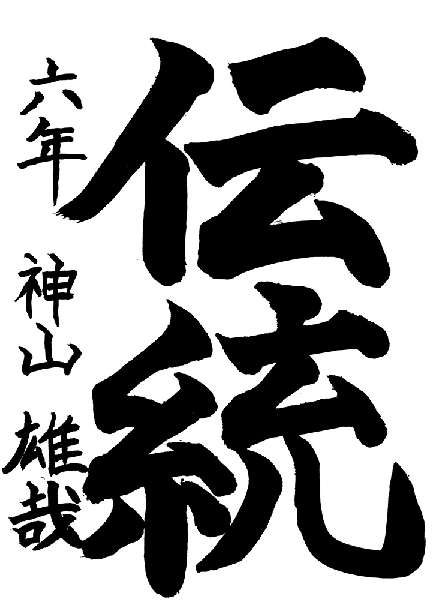 伝統
六年 神山 雄哉